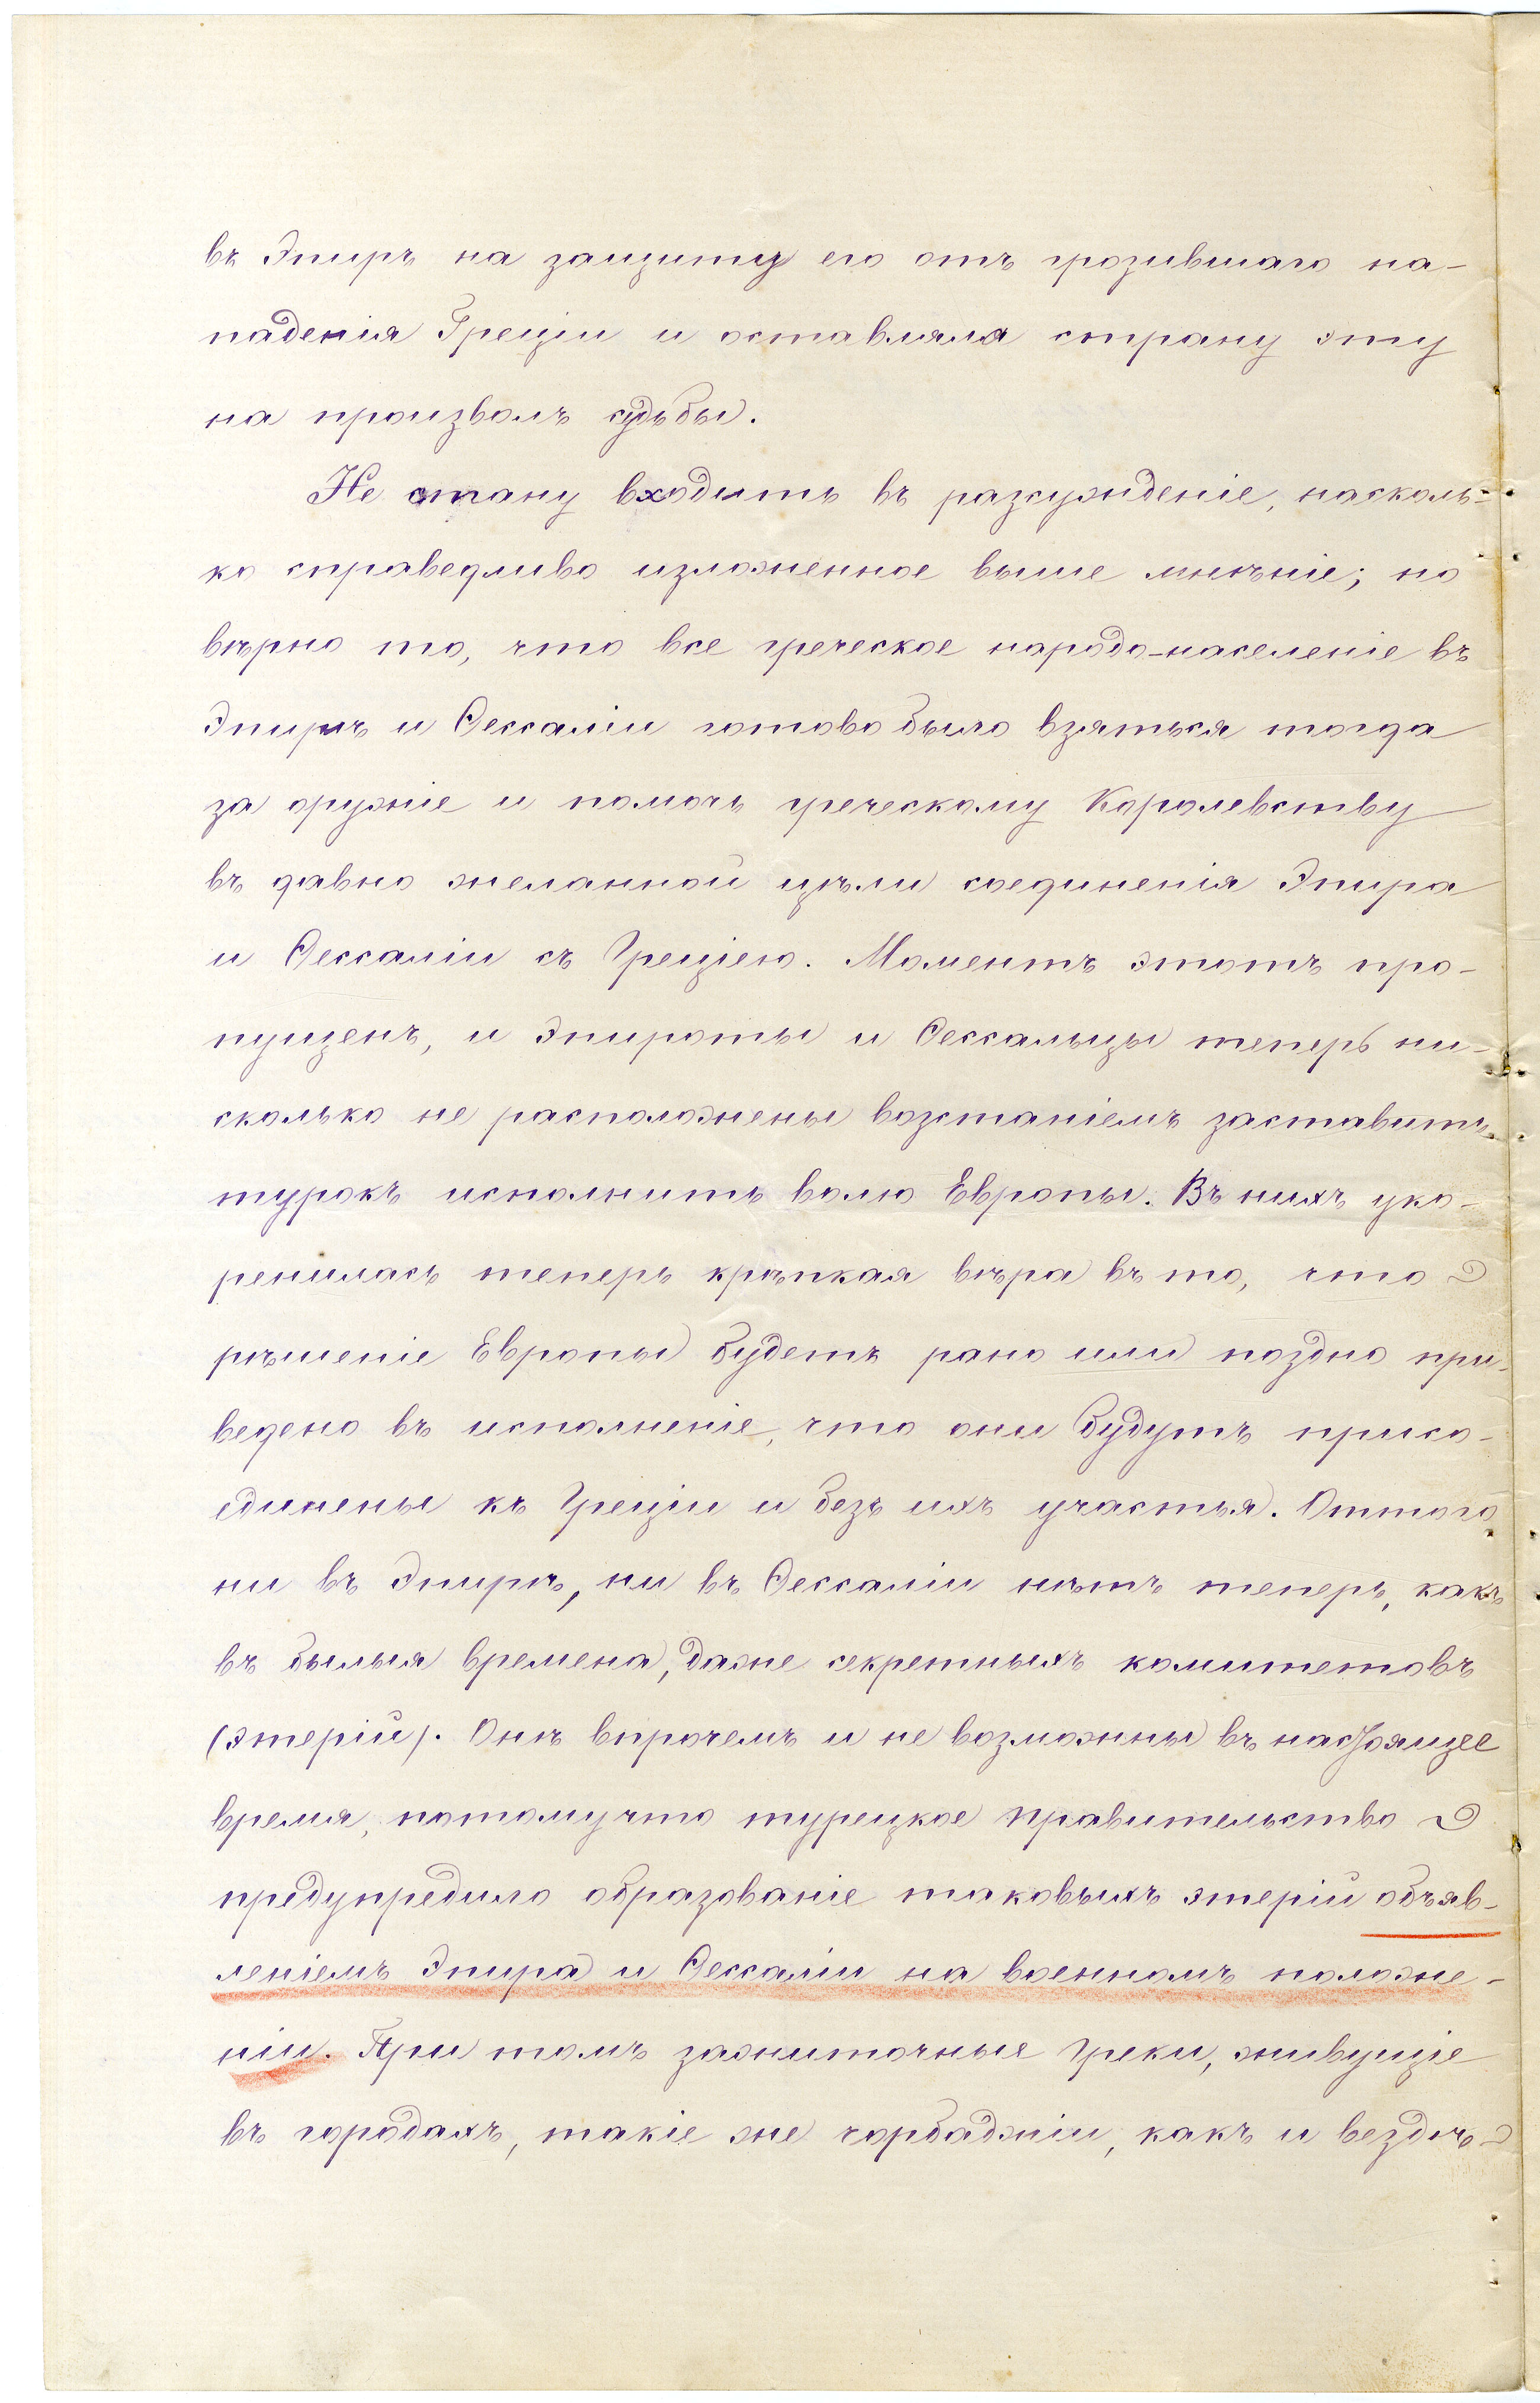 въ Эпиръ на защиту его отъ грозившаго на-
паденія Греціи и оставляла страну эту
на произволъ судьбы.
Не стану входить въ разсужденіе, насколь-
ко справедливо изложенное выше мнѣніе; но
вѣрно то, что все греческое народо-населеніе въ
Эпирѣ и Ѳессаліи готово было взяться тогда
за оружіе и помочь греческому Королевству
въ давно желанной цѣли соединенія Эпира
и Ѳессаліи съ Греціею. Моментъ этотъ про-
пущенъ, и Эпироты и Ѳессальцы теперь ни-
сколько не расположены возстаніемъ заставить
турокъ исполнить волю Европы. Въ нихъ уко-
ренилась теперь крѣпкая вѣра въ то, что
рѣшеніе Европы будетъ рано или поздно при-
ведено въ исполненіе, что они будутъ присо-
единены къ Греціи и безъ ихъ участья. Оттого
ни въ Эпирѣ, ни въ Ѳессаліи нѣтъ теперь, какъ
въ былыя времена, даже секретныхъ комитетовъ
(этерій). Онѣ впрочемъ и не возможны въ настоящее
время, потому что турецкое правительство
предупредило образованіе таковыхъ этерій объяв-
леніемъ Эпира и Ѳессаліи на военномъ положе-
ніи. При томъ зажиточные Греки, живущіе
въ городахъ, такіе же чорбаджіи, какъ и вездѣ